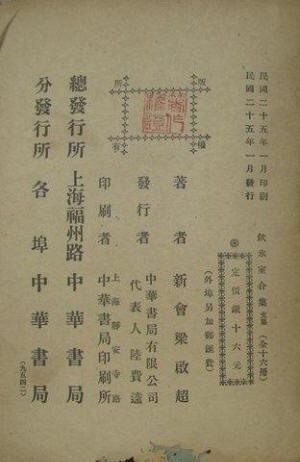 民國二十五年一月印刷
民國二十五年一月發行
飲冰室合集
(全十六冊)
定價銀十六元
(外埠另加郵匯費)
版權所有
著者 新會梁啟超
發行者 中華書局有限公司
代表人陸費逵
印刷者 上海靜安寺路
中華書局印刷所
總發行所 上海福州路 中華書局
分發行所 各埠 中華書局
(九五四二)